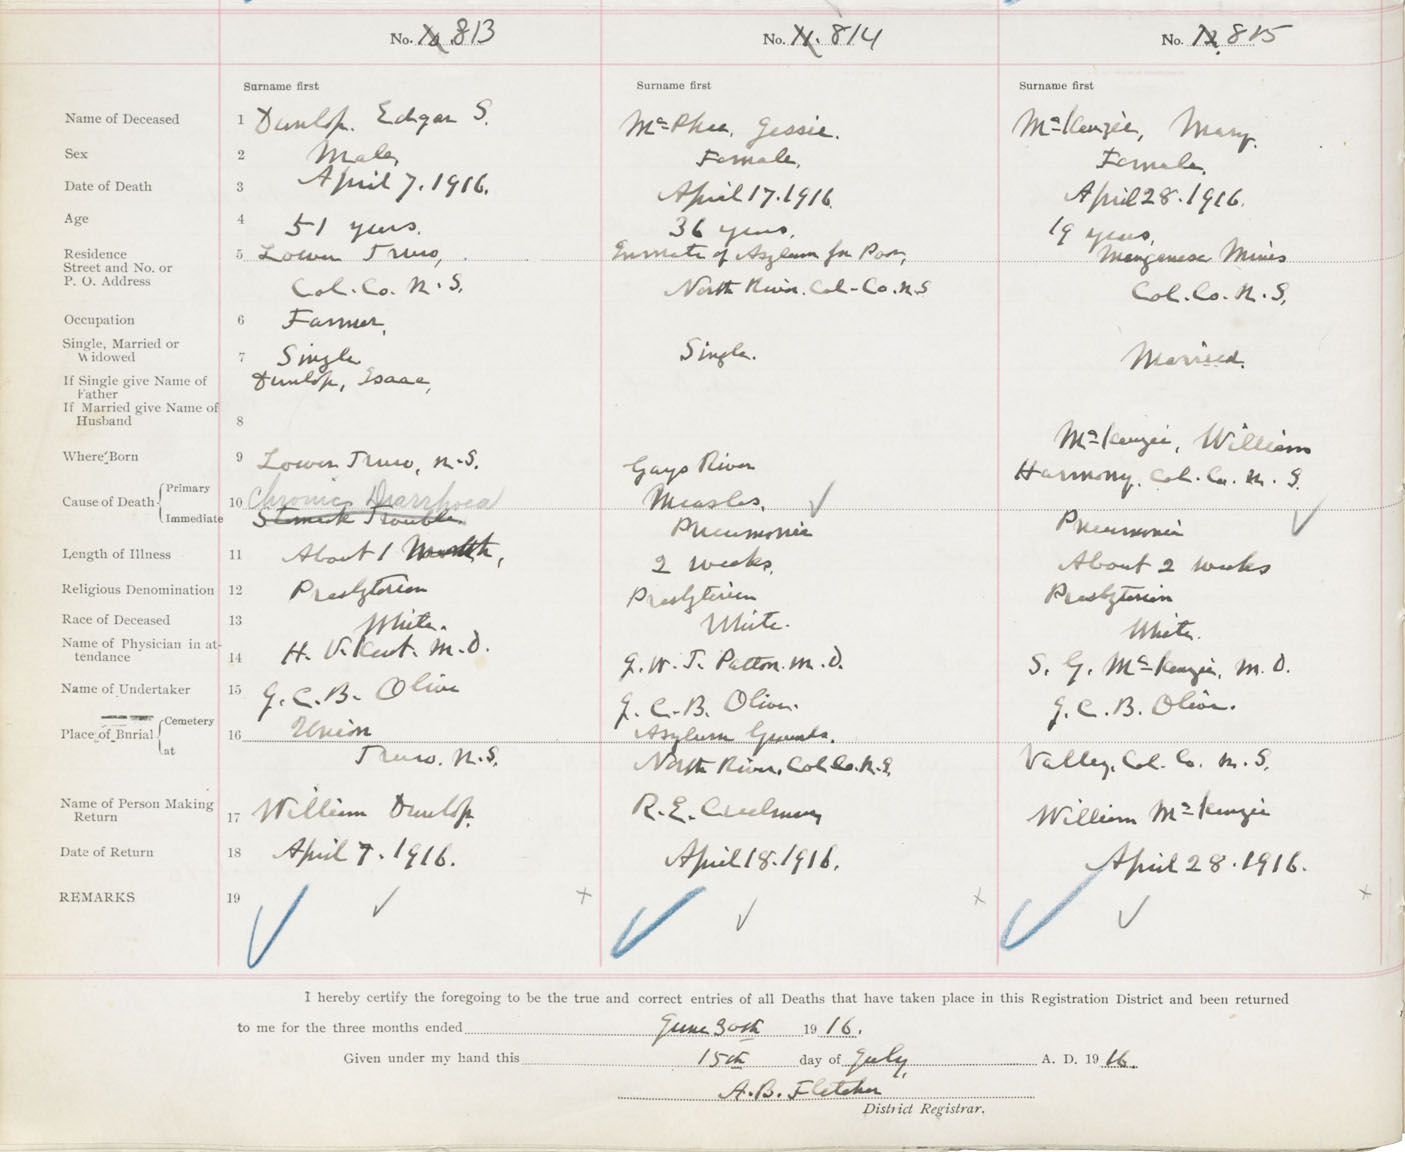 No. 10. 813
No. 11. 814
No. 12. 815
Surname first
Surname first
Surname first
Name of Deceased 1 Dunlop. Edgar S. McPhee, Jessie. McKenzie, Mary.
Sex 2 Male, Female, Female,
Date of Death 3 April 7. 1916. April 17. 1916 April 28. 1916.
Age 4 51 years. 36 years, 19 years,
Residence 5 Lower Truro, Inmate of Asylum for Poor, Manganese Mines
Street and No. or
P. O. Address Col. Co. N. S. North River. Col-Co. N. S Col. Co. N. S,
Occupation 6 Farmer,
Single, Married or
Widowed 7 Single Single. Married.
If Single give Name of
Father Dunlop, Isaac,
If Married give Name of
Husband 8 McKenzie, William
Where Born 9 Lower Truro, N. S. Gays River Harmony, Col. Co. N. S.
Cause of Death Primary 10 Chronic Diarrhoea Measles,
Immediate Stomach Trouble Pneumonia Pneumonia
Length of Illness 11 About 1 Month, 2 weeks, About 2 weeks
Religious Denomination 12 Presbyterian Presbyterian Presbyterian
Race of Deceased 13 White. White. White.
Name of Physician in at-
tendance 14 H. V. Kent. M. D. J. W. T. Patton. M. D. S. G. McKenzie, M. D.
Name of Undertaker 15 J. C. B. Olive J. C. B. Olive. J. C. B. Olive.
Place of Burial Cemetery 16 Union Asylum Grounds.
at Truro. N. S. North River, Col Co. N. S. Valley, Col. Co. N. S,
Name of Person Making
Return 17 William Dunlop. R. E. Creelman William McKenzie
Date of Return 18 April 7. 1916. April 18. 1916. April 28. 1916.
REMARKS 19
I hereby certify the foregoing to be the true and correct entries of all Deaths that have taken place in this Registration District and been returned
to me for the three months ended June 30th 1916.
Given under my hand this 15th day of July, A. D. 1916.
A. B. Fletcher
District Registrar.